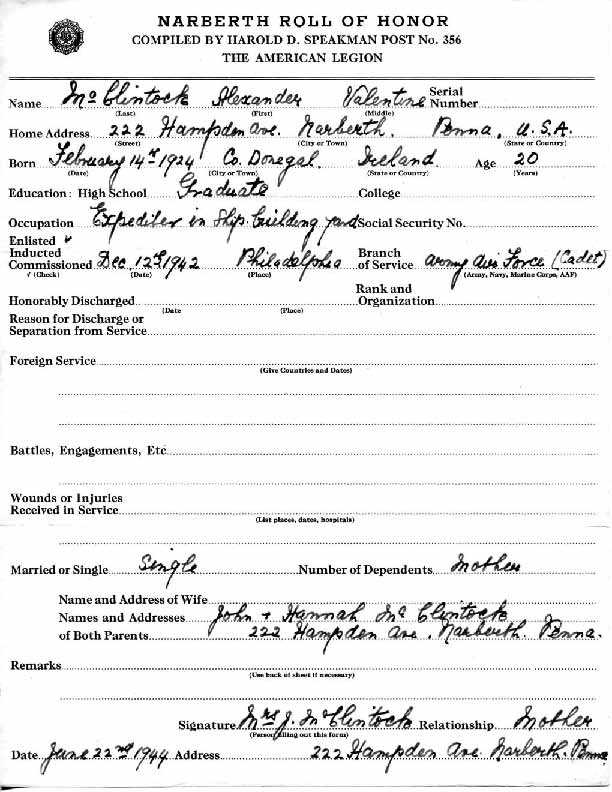 NARBERTH ROLL OF HONOR
COMPILED BY HAROLD D. SPEAKMAN POST No. 356
THE AMERICAN LEGION
Name McClintock Alexander Valentine Serial Number
(Last) (First) (Middle)
Home Address 222 Hampden Ave. Narberth. Penna, U.S.A.
(Street) (City or Town) (State or Country)
Born February 14th 1924 Co. Donegal. Ireland Age 20
(Date) (City or Town) (State or Country) (Years)
Education: High School Graduate College
Occupation Expediter in Ship building yard Social Security No.
Enlisted ✓
Inducted
Commissioned Dec 12th 1942 Philadelphia Branch of Service Army Air Force (Cadet)
√ (Check) (Date) (Place) (Army, Navy, Marine Corps, AAF)
Honorably Discharged Rank and Organization
(Date (Place)
Reason for Discharge or
Separation from Service
Foreign Service
(Give Countries and Dates)
Battles, Engagements, Etc
Wounds or Injuries
Received in Service
(List places, dates, hospitals)
Married or Single Single Number of Dependents Mother
Name and Address of Wife
Names and Addresses John + Hannah McClintock
of Both Parents 222 Hampden Ave. Narberth. Penna.
Remarks
(Use back of sheet if necessary)
Signature Mrs J. McClintock Relationship Mother
(Person filling out this form)
Date June 22nd 1944 Address 222 Hampden Ave Narberth. Penna